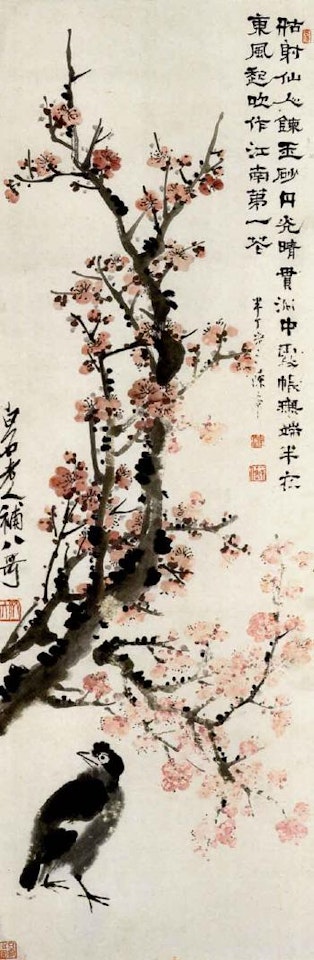 姑射仙人鍊玉砂丹光晴貫洞中霞帳無端半夜
東風起吹作江南第一花
半丁陳年
白石老人補八哥